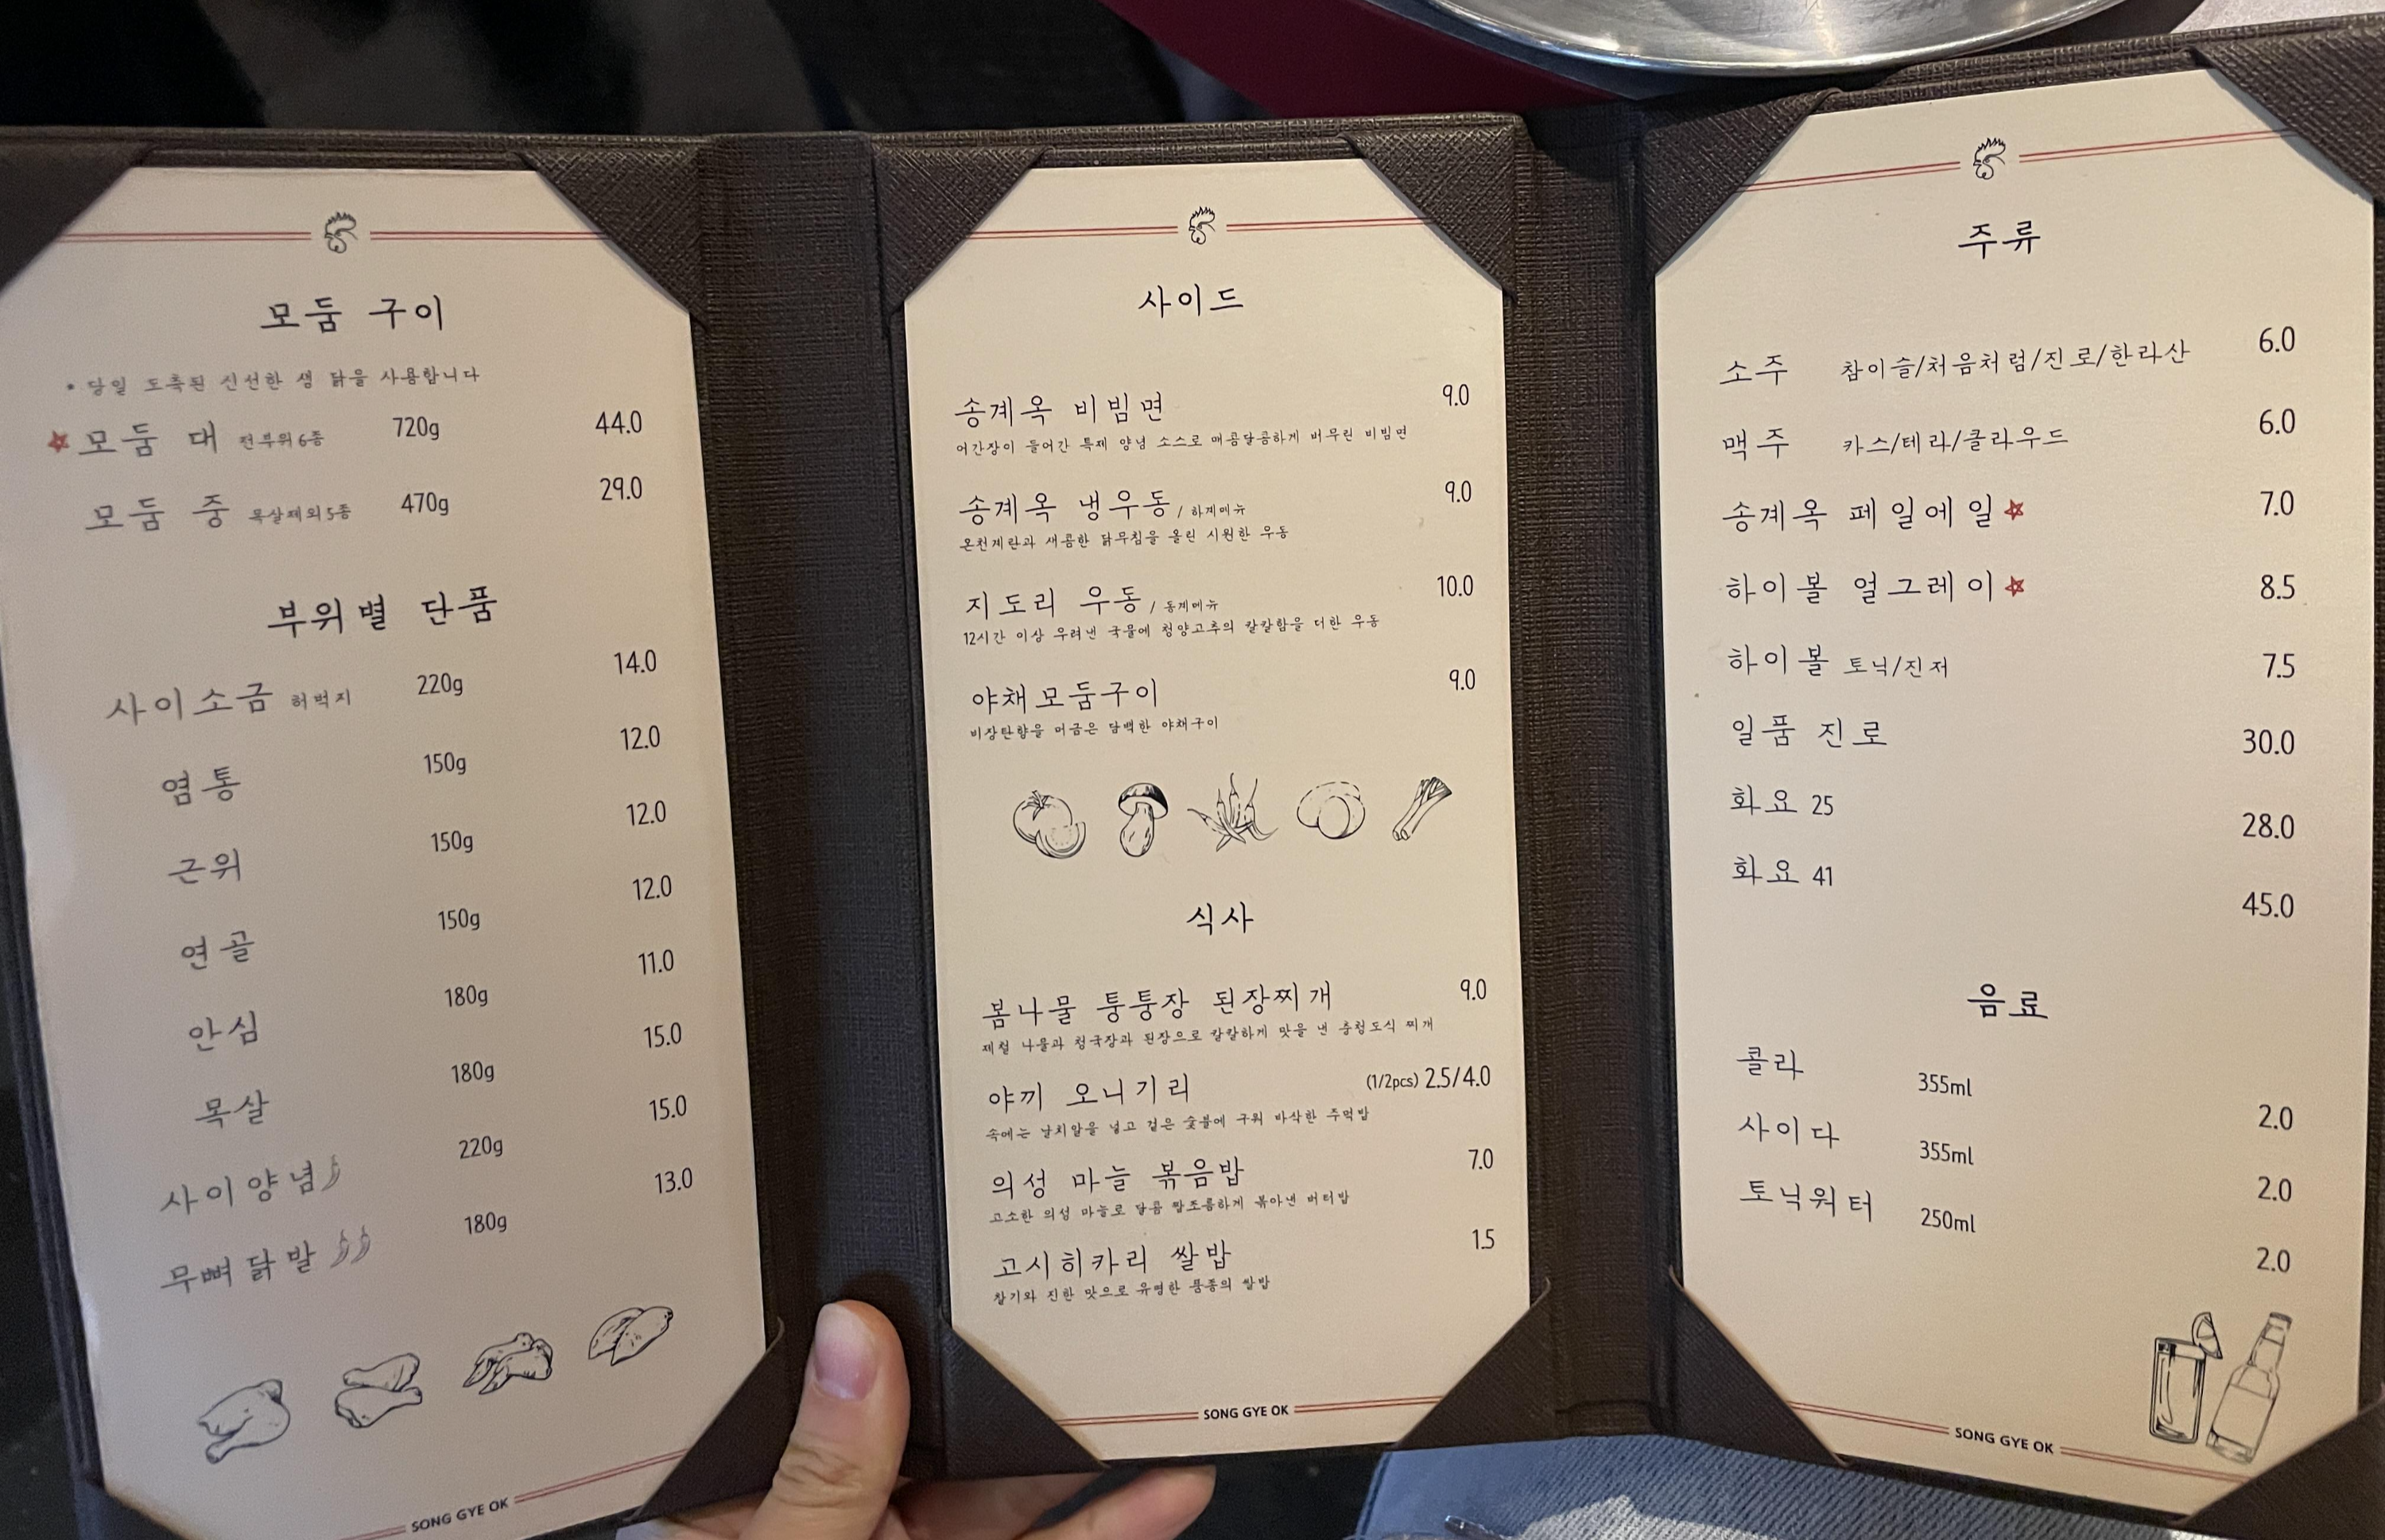 모둠 구이
* 당일 도축된 신선한 생 닭을 사용합니다
모둠 대 전부위 6종 720g 44.0
모둠 중 목살제외 5종 470g 29.0
부위별 단품
사이소금 허벅지 220g 14.0
염통 150g 12.0
근위 150g 12.0
연골 150g 12.0
안심 180g 11.0
목살 180g 15.0
사이양념 220g 15.0
무뼈닭발 180g 13.0
SONG GYE OK
사이드
송계옥 비빔면 9.0
어간장이 들어간 특제 양념 소스로 매콤달콤하게 버무린 비빔면
송계옥 냉우동 / 하계메뉴 9.0
온천계란과 새콤한 닭무침을 올린 시원한 우동
지도리 우동 / 동계메뉴 10.0
12시간 이상 우려낸 국물에 청양고추의 칼칼함을 더한 우동
야채모둠구이 9.0
비장탄향을 머금은 담백한 야채구이
식사
봄나물 퉁퉁장 된장찌개 9.0
제철 나물과 청국장과 된장으로 칼칼하게 맛을 낸 충청도식 찌개
야끼 오니기리 (1/2pcs) 2.5/4.0
속에는 날치알을 넣고 겉은 숯불에 구워 바삭한 주먹밥
의성 마늘 볶음밥 7.0
고소한 의성 마늘로 달콤 짭조름하게 볶아낸 버터밥
고시히카리 쌀밥 1.5
찰기와 진한 맛으로 유명한 품종의 쌀밥
SONG GYE OK
주류
소주 참이슬/처음처럼/진로/한라산 6.0
맥주 카스/테라/클라우드 6.0
송계옥 페일에일 7.0
하이볼 얼그레이 8.5
하이볼 토닉/진저 7.5
일품 진로 30.0
화요 25 28.0
화요 41 45.0
음료
콜라 355ml 2.0
사이다 355ml 2.0
토닉워터 250ml 2.0
SONG GYE OK